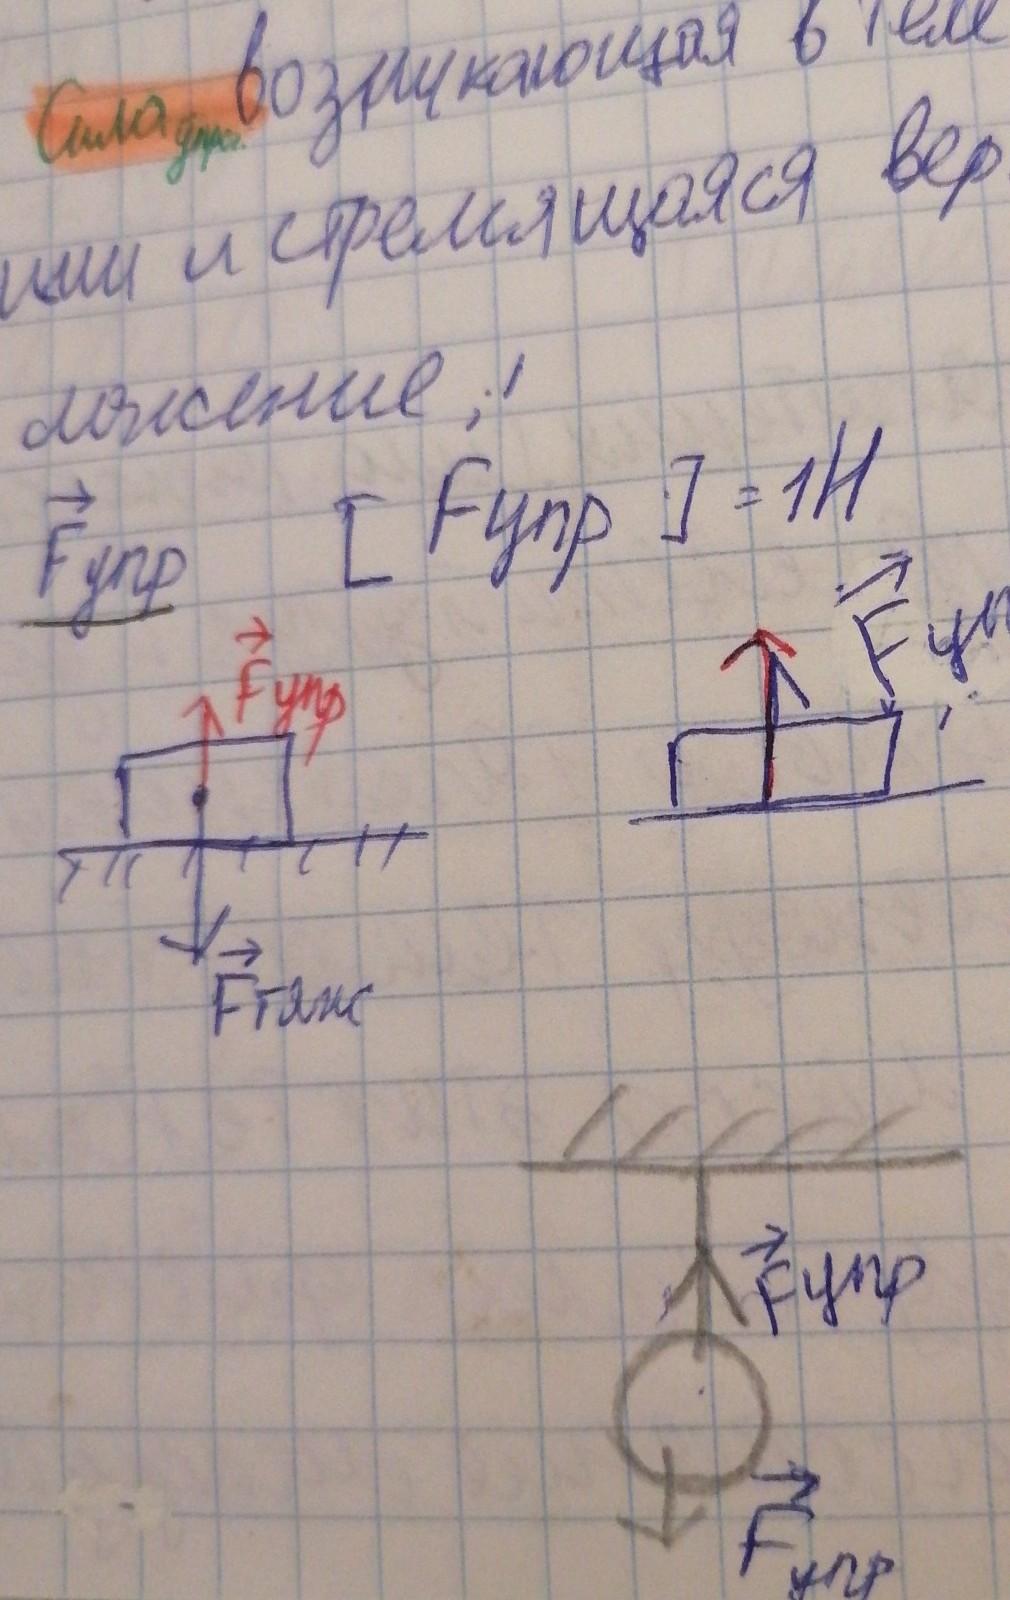 Сила упр. возникающая в теле
ции и стремящаяся вер
ложение;
Fупр [ Fупр ] = 1Н
Fупр
Fуп
Fтяж
Fупр
Fупр